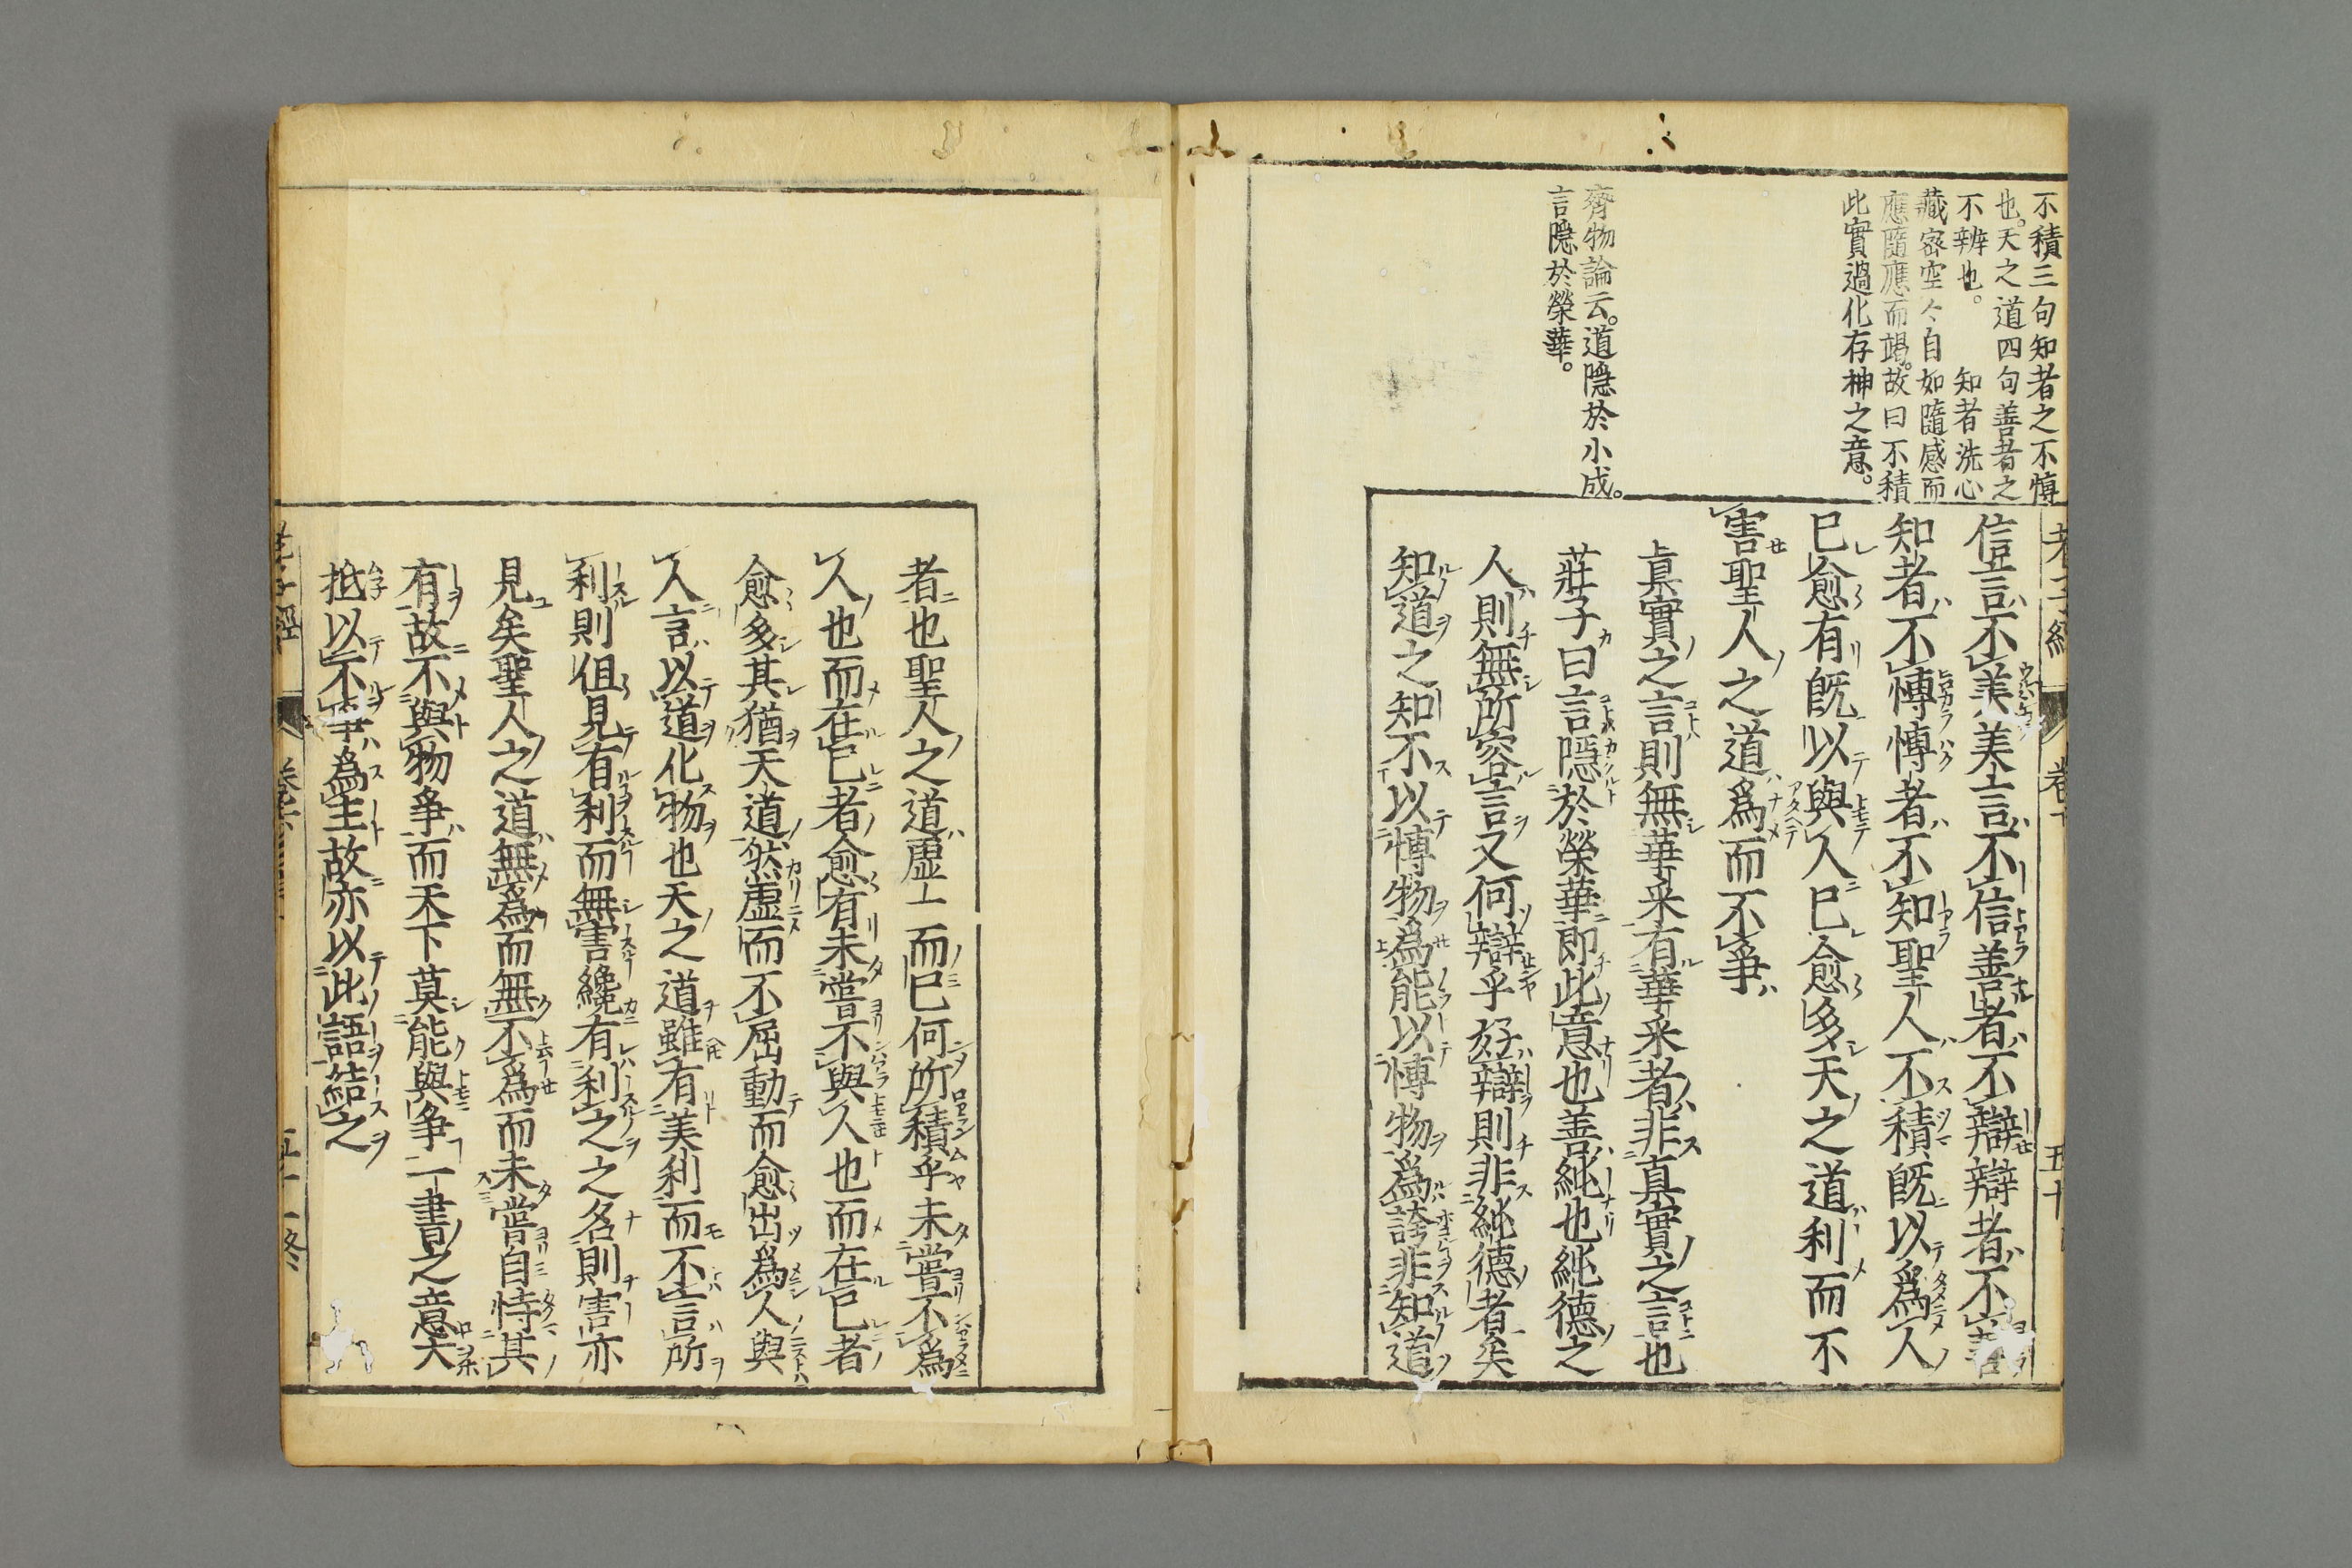 不積三句知者之不愽
也。天之道四句善者之
不辨也。　知者洗心
藏密空々自如隨感而
應隨應而竭。故曰不積
此實過化存神之意。
齊物論云。道隱於小成。
言隱於榮華。
信言不美美言不信善者不辯辯者不善
知者不愽愽者不知聖人不積既以爲人
巳愈有既以與人巳愈多天之道利而不
害聖人之道爲而不爭
真實之言則無華釆有華釆者非真實之言也
莊子曰言隱於榮華即此意也善純也純德之
人則無所容言又何辯乎好辯則非純德者矣
知道之知不以愽物爲能以愽物爲誇非知道
者也聖人之道虛而巳何所積乎未嘗不爲
人也而在巳者愈有未嘗不與人也而在巳者
愈多其猶天道然虛而不屈動而愈出爲人與
人言以道化物也天之道雖有美利而不言所
利則但見有利而無害纔有利之之名則害亦
見矣聖人之道無爲而無不爲而未嘗自恃其
有故不與物爭而天下莫能與爭一書之意大
抵以不爭爲主故亦以此語結之
老子經
卷下
五十一終